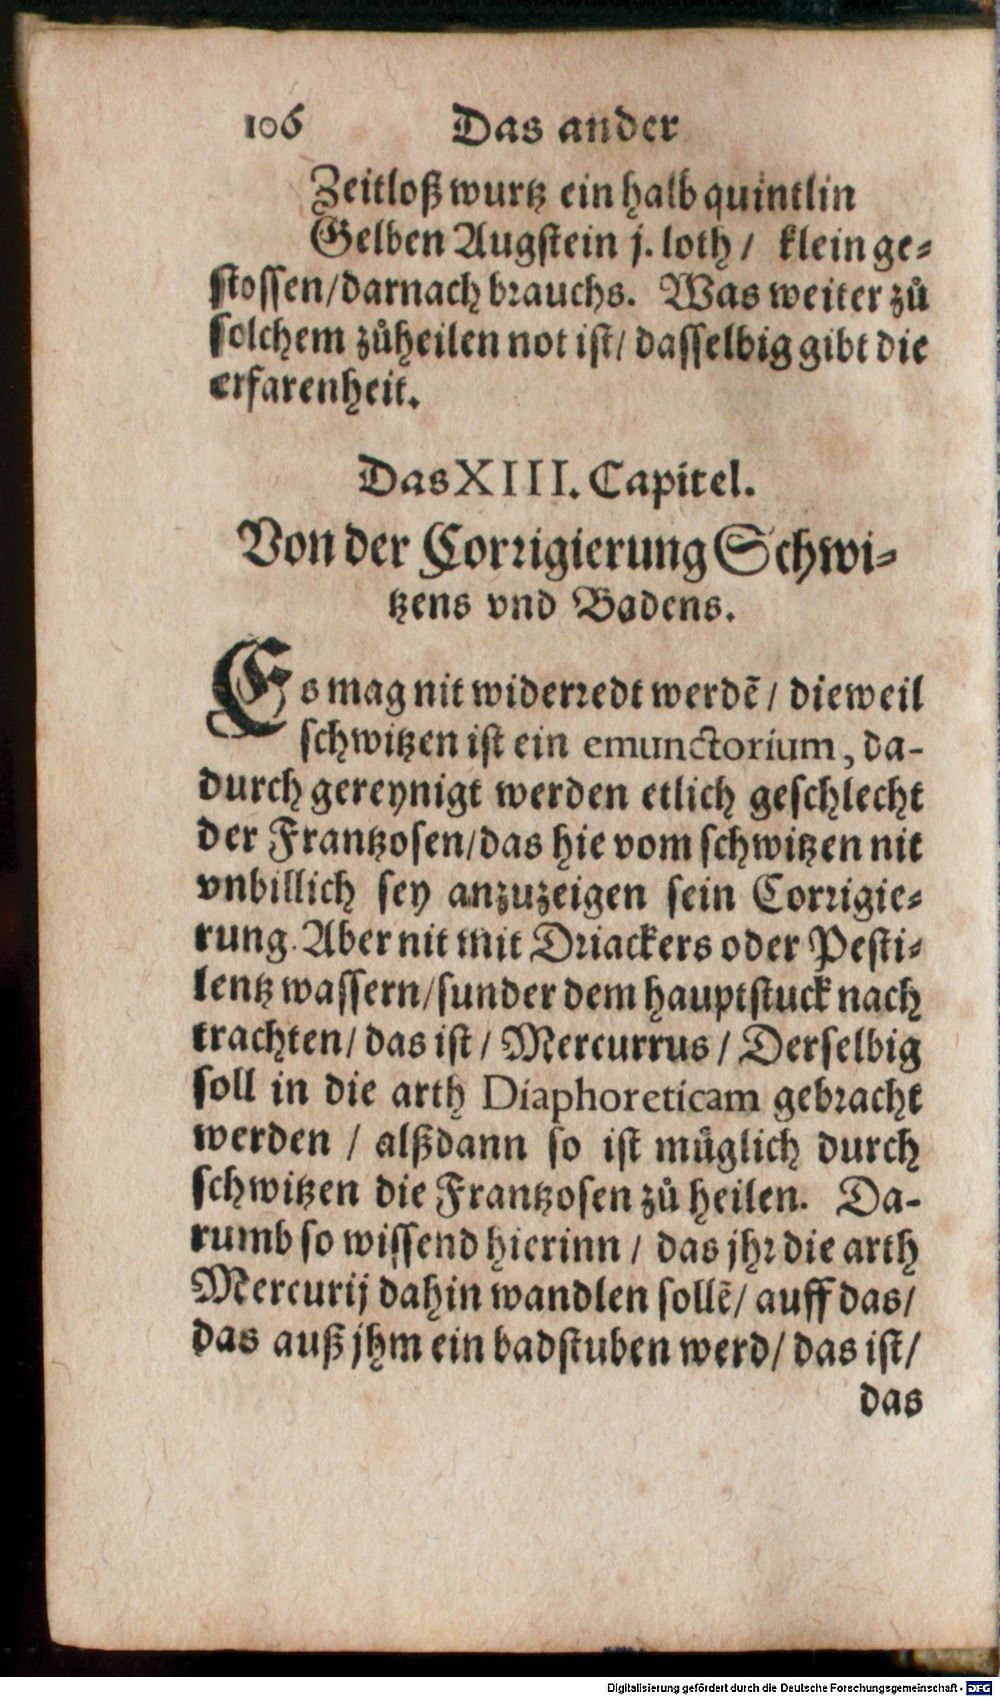 106 Das ander
Zeitloß wurtz ein halb quintlin
Gelben Augstein j. loth / klein ge-
stossen/darnach brauchs. Was weiter zů
solchem zůheilen not ist/ dasselbig gibt die
erfarenheit.
Das XIII. Capitel.
Von der Corrigierung Schwi-
tzens vnd Badens.
Es mag nit widerredt werdē / dieweil
schwitzen ist ein emunctorium, da-
durch gereynigt werden etlich geschlecht
der Frantzosen/das hie vom schwitzen nit
vnbillich sey anzuzeigen sein Corrigie-
rung. Aber nit mit Driackers oder Pesti-
lentz wassern/sunder dem hauptstuck nach
trachten/ das ist / Mercurrus / Derselbig
soll in die arth Diaphoreticam gebracht
werden / alßdann so ist müglich durch
schwitzen die Frantzosen zů heilen. Da-
rumb so wissend hierinn / das jhr die arth
Mercurij dahin wandlen sollē/ auff das/
das auß jhm ein badstuben werd/ das ist/
das
Digitalisierung gefördert durch die Deutsche Forschungsgemeinschaft - DFG